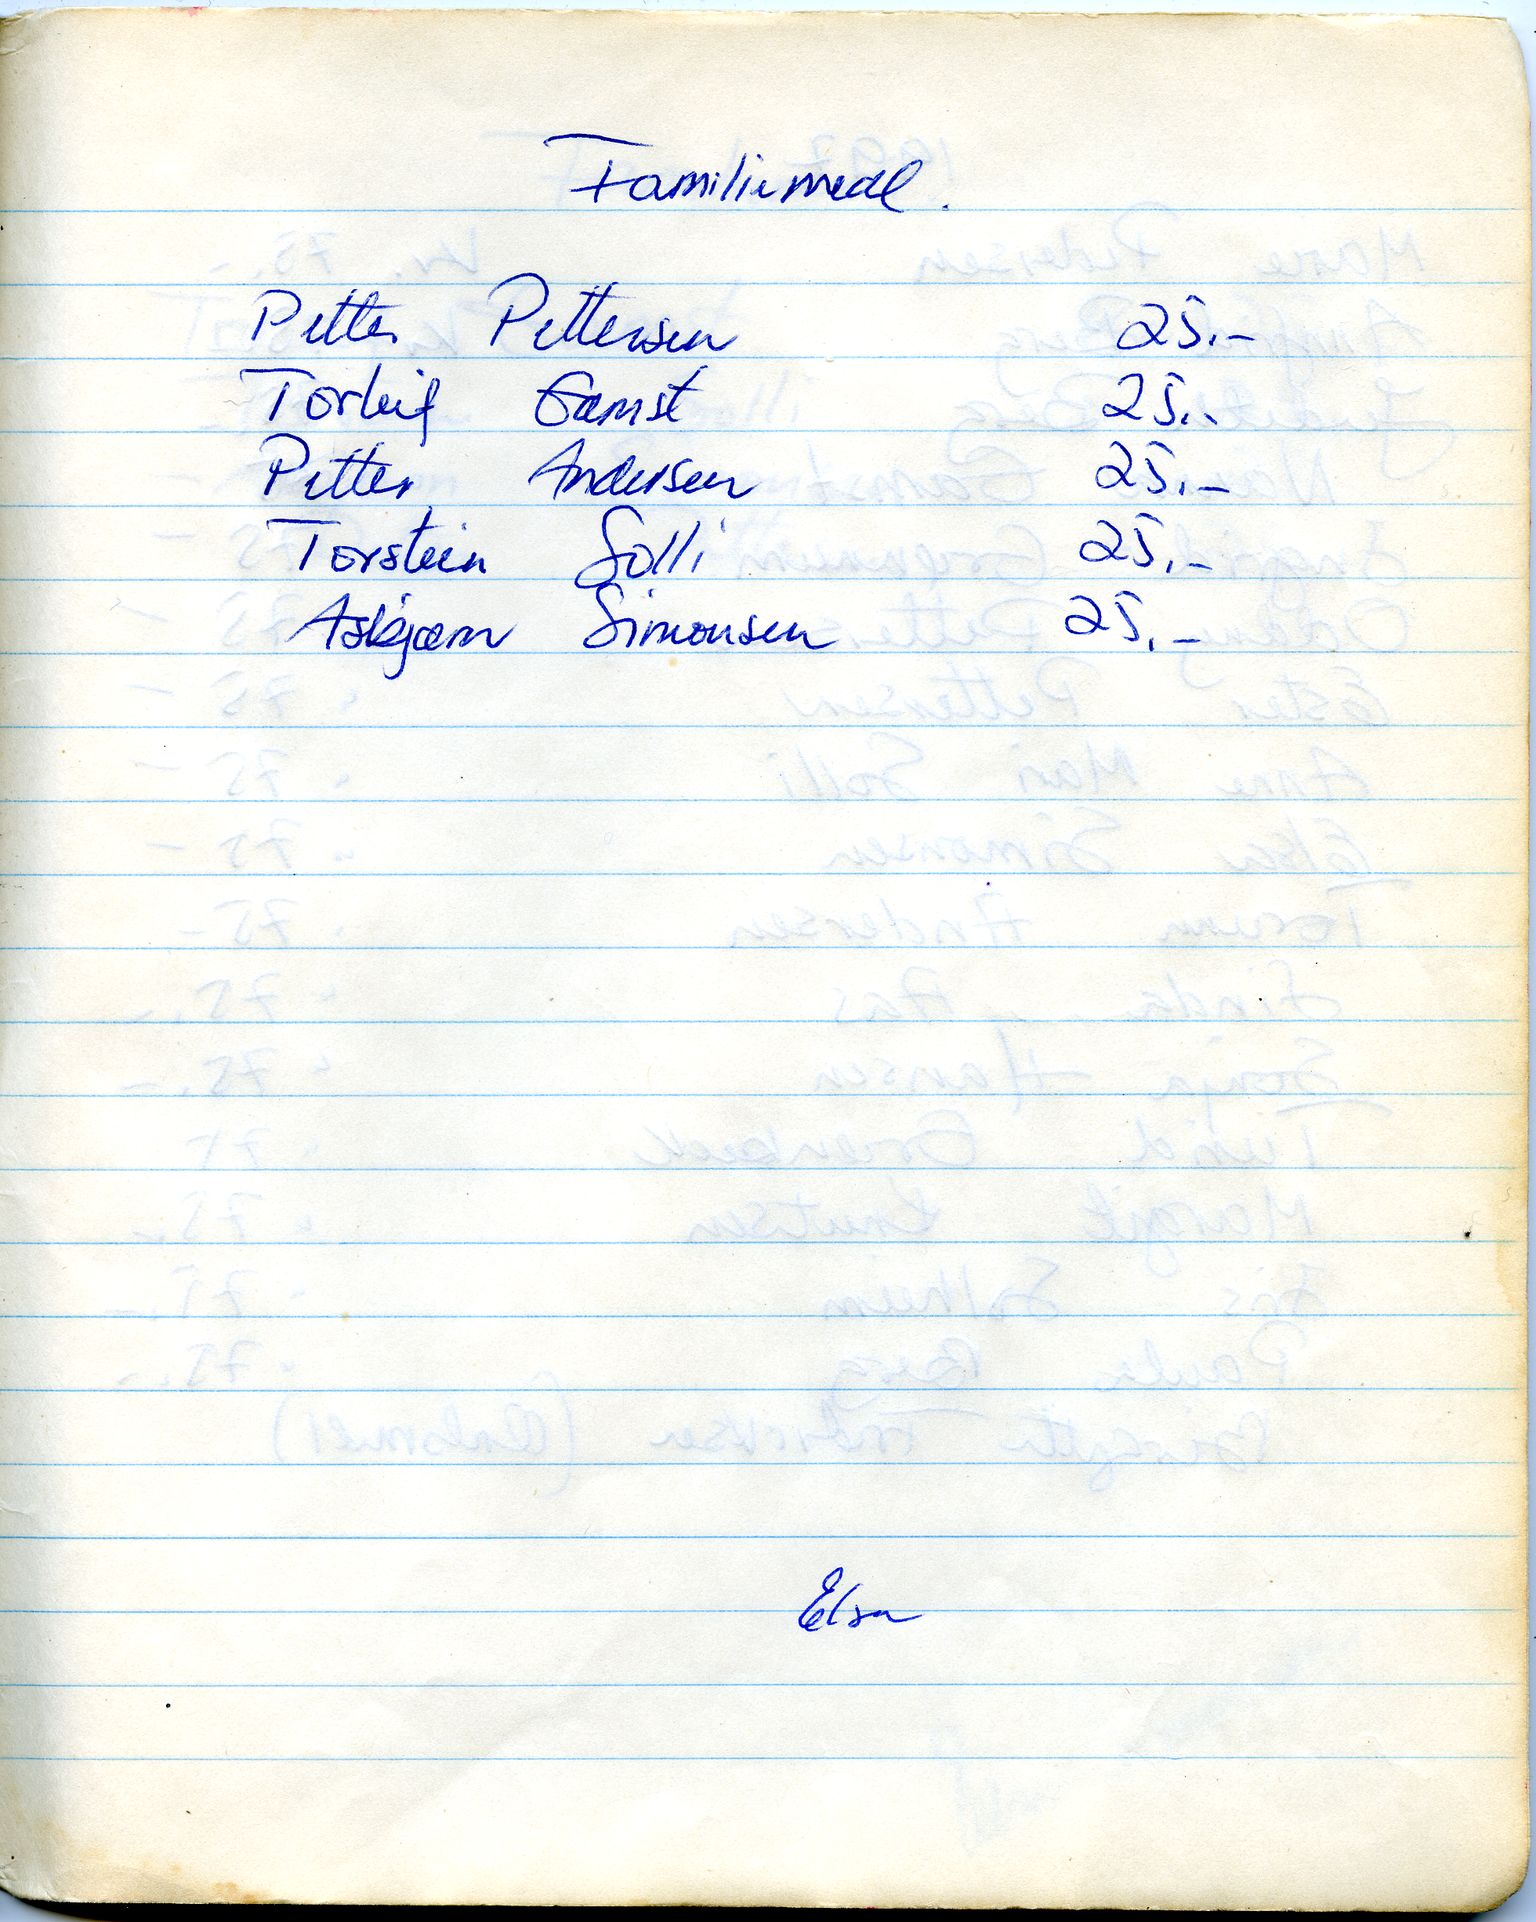 Familiemedl.
Petter Pettersen 25.-
Torleif Gamst 25.-
Petter Andersen 25.-
Torstein Solli 25.-
Asbjørn Simonsen 25.-
Elsa